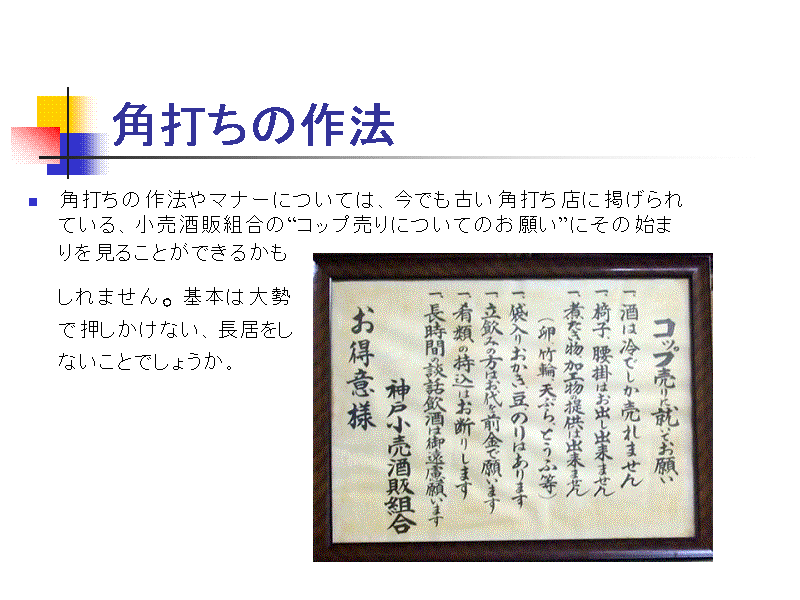 角打ちの作法
角打ちの作法やマナーについては、今でも古い角打ち店に掲げられ
ている、小売酒販組合の“コップ売りについてのお願い”にその始ま
りを見ることができるかも
しれません。基本は大勢
で押しかけない、長居をし
ないことでしょうか。
コップ売りに就てお願い
一、酒は冷でしか売れません
一、椅子、腰掛はお出し出来ません
一、煮たき物加工物の提供は出来ません
(卵、竹輪、天ぷら、とうふ等)
一、袋入りおかき、豆、のりはあります
一、立飲みの方はお代を前金で願います
一、肴類の持込はお断りします
一、長時間の談話飲酒は御遠慮願います
神戸小売酒販組合
お得意様